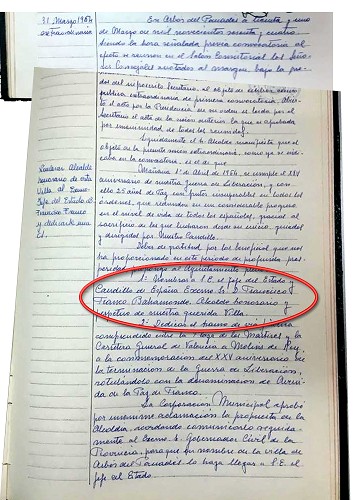 31. Marzo 1964
extraordinaria
En Arbós del Panadés a treinta y uno
de Marzo de mil novecientos sesenta y cuatro
siendo la hora señalada previa convocatoria al
efecto se reunen en el Salón Consistorial los Seño-
res Concejales anotados al margen bajo la pre-
del infrascrito Secretario, al objeto de celebrar sesión
pública extraordinaria de primera convocatoria. Abier-
to el acto por la Presidencia, de su orden es leída por el
Secretario el acta de la sesión anterior, la que es aprobada
por unanimidad de todos los reunidos.
Seguidamente el Sr. Alcalde manifiesta que el
objeto de la presente sesión extraordinaria, como ya se indi-
caba en la convocatoria, es el de que
Nombrar Alcalde
honorario de esta
Villa al Excmo.
Jefe del Estado D.
Francisco Franco
y dedicarle una
Mañana 1º de Abril de 1964, se cumple el XXV
aniversario de nuestra Guerra de Liberación, y con
ello 25 años de Paz con frutos magníficos en todos los
órdenes, que redundan en un considerable progreso
en el nivel de vida de todos los españoles, gracias al
sacrificio de los que lucharon desde un inicio, guiados
y dirigidos por Nuestro Caudillo.
Deber de gratitud por los beneficios que nos
ha proporcionado en este periodo de profunda pros-
peridad, propongo al Ayuntamiento pleno
1º Nombrar a S.E. el Jefe del Estado y
Caudillo de España Excmo. Sr. D. Francisco
Franco Bahamonde, Alcalde honorario y
perpetuo de nuestra querida Villa.
2º Dedicar el tramo de vía
comprendido entre la Plaza de los Mártires y la
Carretera General de Valencia a Molins de Rey,
a la conmemoración del XXV aniversario de
la terminación de la Guerra de Liberación,
rotulándolo con la denominación de Aveni-
da de la Paz de Franco.
La Corporación Municipal aprobó
por unánime aclamación la propuesta de la
Alcaldía, acordando comunicarlo seguida-
mente al Excmo. Sr. Gobernador Civil de la
Provincia, para que en nombre de la villa de
Arbós del Panadés lo haga llegar a S.E. el
Jefe del Estado.